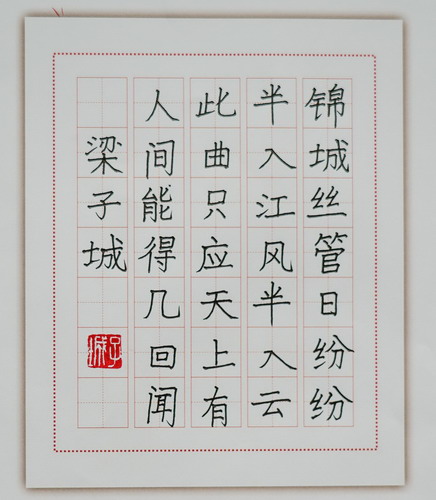 锦城丝管日纷纷
半入江风半入云
此曲只应天上有
人间能得几回闻
梁子城
子城